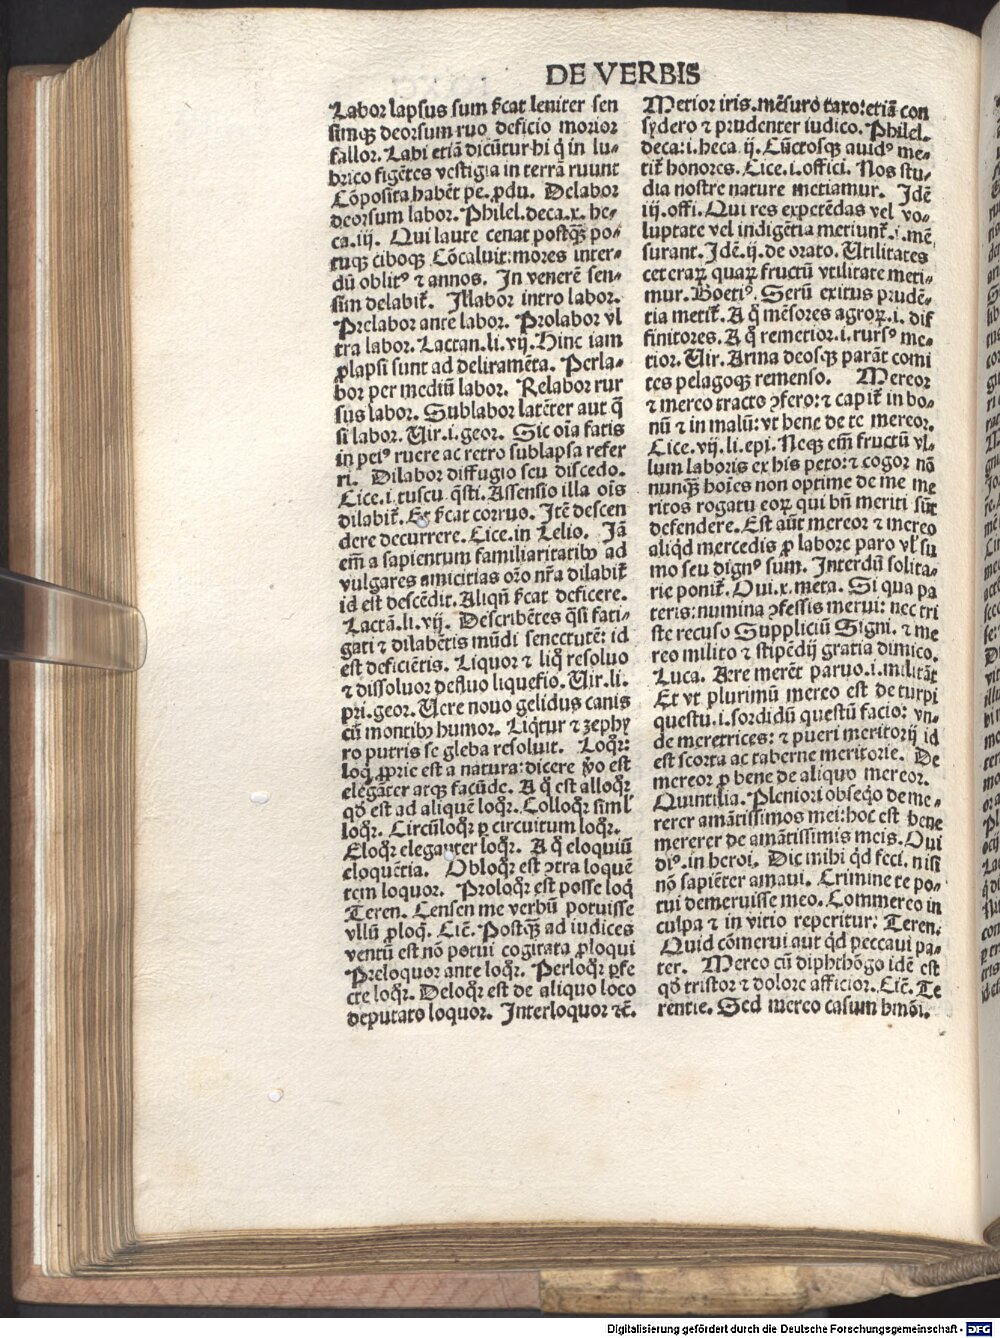 DE VERBIS
Labor lapsus sum ſ̄cat leniter ſen
ſimq; deorsum ruo deficio morior
fallor. Labi etiā dicūtur hi q̄ in lu⸗
brico figētes veſtigia in terrā ruunt
Cōpoſita habēt pe. ꝓdu. Delabor
deorsum labor. Philel. deca. x. he⸗
ca. iii. Qui laute cenat poſtq̄ꝫ po⸗
tuq; ciboq; Cōcaluit: mores inter⸗
dū oblitꝰ ⁊ annos. In venerē ſen⸗
ſim delabit̄. Illabor intro labor.
Prelabor ante labor. Prolabor vl
tra labor. Lactan. li. vij. Hinc iam
ꝓlapſi ſunt ad deliramēta. Perla⸗
bor per mediū labor. Relabor rur
ſus labor. Sublabor latēter aut q̄
ſi labor. Uir. i. geor. Sic oīa fatis
in peiꝰ ruere ac retro ſublapſa refer
ri. Dilabor diffugio ſeu diſcedo.
Cice. i. tuſcu. q̄ſti. Aſſenſio illa oīs
dilabit̄. Et ſ̄cat corruo. Itē deſcen
dere decurrere. Cice. in Lelio. Jā
em̄ a ſapientum familiaritatibꝰ ad
vulgares amicitias orō nr̄a dilabit̄
id eſt deſcēdit. Aliqn̄ ſ̄cat deficere.
Lactā. li. vij. Deſcribētes q̄ſi fati⸗
gati ⁊ dilabētis mūdi ſenectutē: id
eſt deficiētis. Liquor ⁊ liq̄ reſoluo
⁊ diſſoluor defluo liquefio. Uir. li.
pri. geor. Uere nouo gelidus canis
cū montibꝰ humor. Liq̄tur ⁊ zephy
ro putris ſe gleba reſoluit. Loq̄r:
loq̄ ꝓprie eſt a natura: dicere v̄o eſt
elegāter atq; facūde. A q̄ eſt alloq̄r
qd̄ eſt ad aliquē loq̄r. Colloq̄r ſiml̓
loq̄r. Circūloq̄r ꝑ circuitum loq̄r.
Eloq̄r eleganter loq̄r. A q̄ eloquiū
eloquētia. Obloq̄r eſt ↄtra loquē
tem loquor. Proloq̄r eſt poſſe loq̄
Teren. Cenſen me verbū potuiſſe
vllū ꝓloq̄. Ciē. Poſtq̄ꝫ ad iudices
ventū eſt nō potui cogitata ꝓloqui
Preloquor ante loq̄r. Perloq̄r ꝑfe
cte loq̄r. Deloq̄r eſt de aliquo loco
deputato loquor. Interloquor ⁊c̄.
Metior iris. mēſuro taxo: etiā con
ſydero ⁊ prudenter iudico. Philel.
deca: i. heca. ij. Cūctoſq; auidꝰ me⸗
tit̄ honores. Cice. i. offici. Nos ſtu⸗
dia noſtre nature metiamur. Idē
iij. offi. Qui res expetēdas vel vo⸗
luptate vel indigētia metiunt̄. i. mē
ſurant. Idē. ij. de orato. Utilitates
ceteraꝝ quaꝝ fructū vtilitate meti⸗
mur. Boetiꝰ. Serū exitus prudē⸗
tia metit̄. A q̄ mēſores agroꝝ. i. dif
finitores. A q̄ remetior. i. rurſꝰ me⸗
tior. Uir. Arma deoſq; parāt comi
tes pelagoq; remenſo. Mereor
⁊ mereo tracto ↄfero: ⁊ capit̄ in bo⸗
nū ⁊ in malū: vt bene de te mereor.
Cice. vij. li. epi. Neq; em̄ fructū vl⸗
lum laboris ex his peto: ⁊ cogor nō
nunq̄ꝫ hoīes non optime de me me
ritos rogatu eoꝝ qui bn̄ meriti ſūt
defendere. Eſt aūt mereor ⁊ mereo
aliq̄d mercedis ꝓ labore paro vl̓ ſu
mo ſeu dignꝰ ſum. Interdū ſolita⸗
rie ponit̄. Oui. x. meta. Si qua pa
teris: numina ↄfeſſis merui: nec tri
ſte recuſo Suppliciū Signi. ⁊ me
reo milito ⁊ ſtipēdij gratia dimico.
Luca. Aere merēt paruo. i. militāt
Et vt plurimū mereo eſt de turpi
queſtu. i. ſordidū queſtū facio: vn⸗
de meretrices: ⁊ pueri meritorij id
eſt ſcorta ac taberne meritorie. De
mereor ꝓ bene de aliquo mereor.
Quintilia. Pleniori obſeq̄o deme⸗
rerer amātiſſimos mei: hoc eſt bene
mererer de amātiſſimis meis. Oui
diꝰ. in heroi. Dic mihi qd̄ feci. niſi
nō ſapiēter amaui. Crimine te po⸗
tui demeruiſſe meo. Commereo in
culpa ⁊ in vitio reperitur: Teren.
Quid cōmerui aut qd̄ peccaui pa⸗
ter. Mereo cū diphthōgo idē eſt
qd̄ triſtor ⁊ dolore afficior. Ciē. Te
rentie. Sed mereo caſum hmōi.
Digitalisierung gefördert durch die Deutsche Forschungsgemeinschaft - DFG